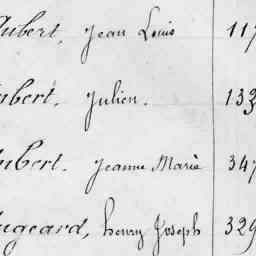 Aubert, Jean Louis 117
Aubert. Julien. 133
Aubert. Jeanne Marie 347
Augeard, henry Joseph 329